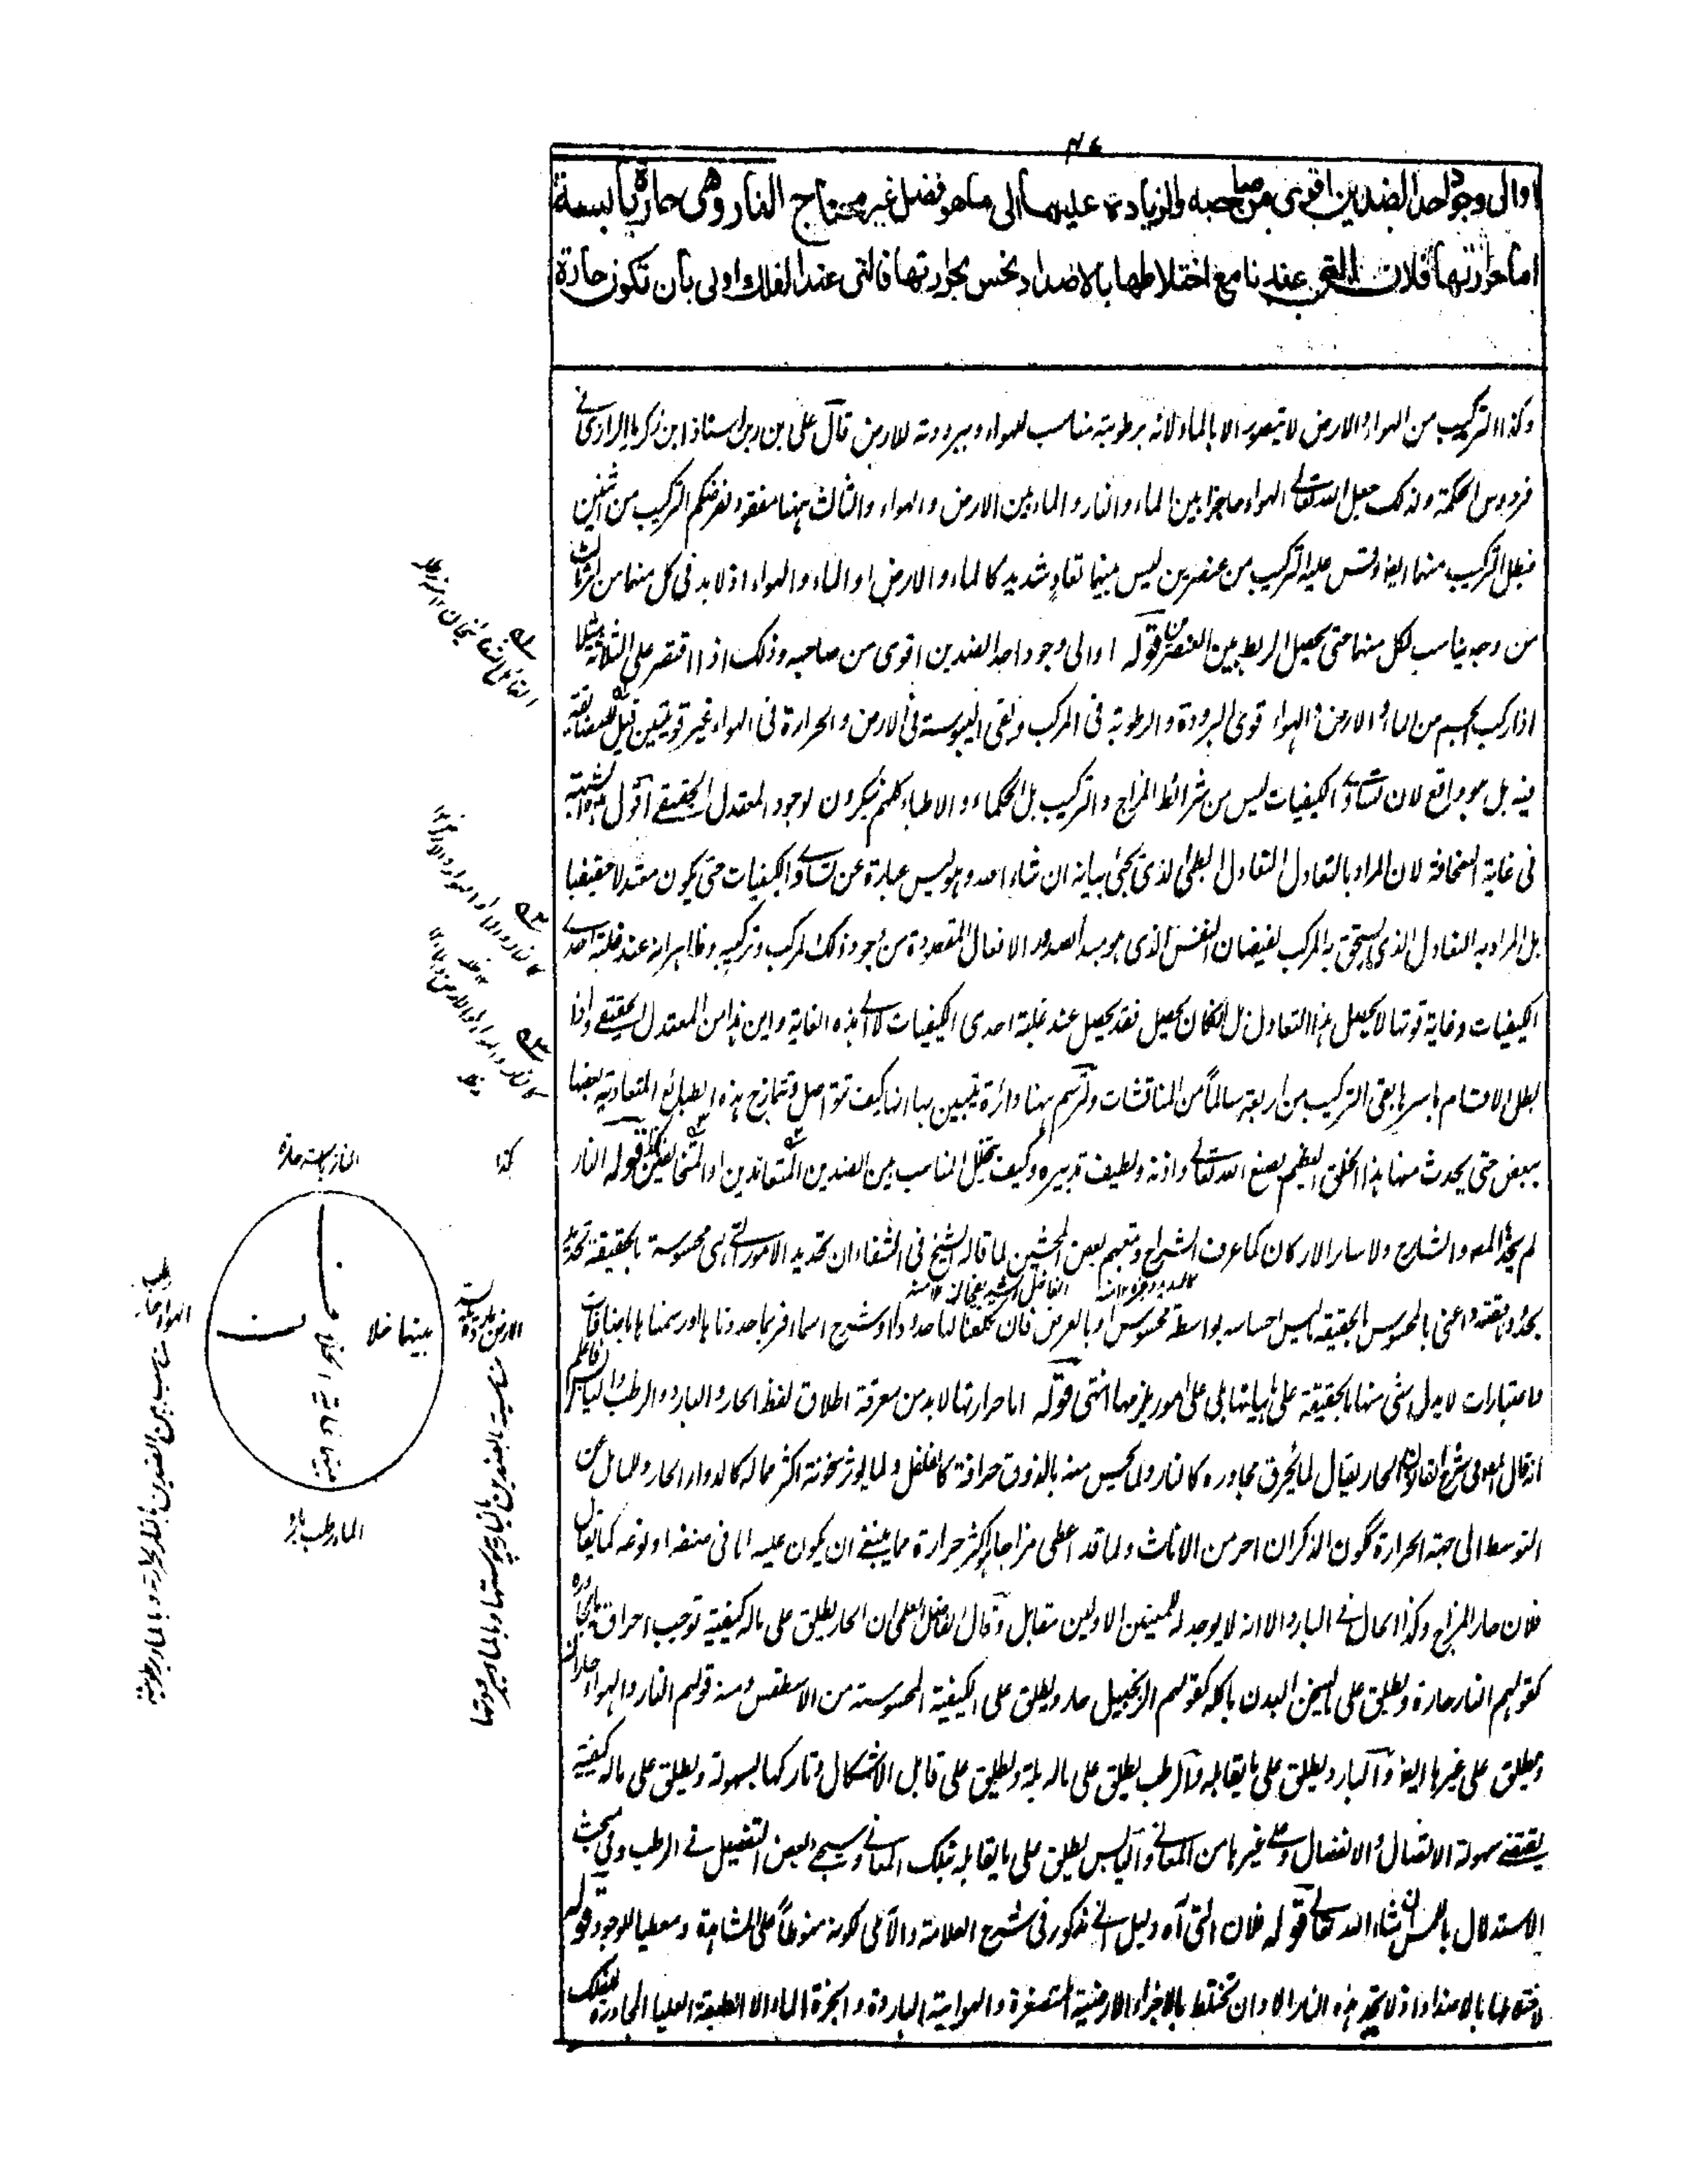 ۴۶
او الى وجود احد الضدين اقوى من صاحبه والزيادة عليها الى ما هو فضل غير محتاج النار وهى حارة يابسة
اما حرارتها فلان التى عندنا مع اختلاطها بالاضداد نحس بحرارتها فالتى عند الفلك اولى بان تكون حارة
وكذا التركيب من الهواء والارض لا يتصور الا بالماء لانه برطوبته مناسب للهواء وببرودته للارض قال على بن ربن استاذ ابن زكريا الرازى فى
فردوس الحكمة ولذلك جعل الله تعالى الهواء حاجزا بين الماء والنار والماء بين الارض والهواء والثالث ههنا مفقود لفرضكم التركيب من اثنين
فبطل التركيب منهما ايضا وقس عليه التركيب من عنصرين ليس بينهما تعاد شديد كالماء والارض او الماء والهواء اذ لا بد فى كل منهما من ثالث
من وجه يناسب لكل منهما حتى يحصل الربط بين العنصرين قوله او الى وجود احد الضدين اقوى من صاحبه وذلك اذا اقتصر على الثلاثة مثلا
اذا ركب الجسم من الماء والارض والهواء قوى البرودة والرطوبة فى المركب وبقى اليبوسة فى الارض والحرارة فى الهواء غير قويتين قيل لا مضايقة
فيه بل هو واقع لان تساوى الكيفيات ليس من شرائط المزاج والتركيب بل الحكماء والاطباء كلهم ينكرون لوجود المعتدل الحقيقى اقول هذا الشبهة
فى غاية السخافة لان المراد بالتعادل التعادل الطبى الذى يجئ بيانه ان شاء احد وهو ليس عبارة عن تساوى الكيفيات حتى يكون معتدلا حقيقيا
بل المراد به التعادل الذى يستحق به المركب لفيضان النفس الذى هو مبدأ لصدور الافعال المقصودة من وجود ذلك المركب وتركيبه وظاهر انه عند غلبة احدى
الكيفيات وغاية قوتها لا يحصل هذا التعادل بل ان كان يحصل فقد يحصل عند غلبة احدى الكيفيات لا الى هذه الغاية واين هذا من المعتدل الحقيقى واذا
بطل الاقسام باسرها بقى التركيب من اربعة سالما من المناقشات ولنرسم ههنا دائرة يتبين بها انها كيف تتواصل وتتمازج هذه الطبائع المتعادية بعضها
ببعض حتى يحدث منها هذا الخلق العظيم بصنع الله تعالى واذنه ولطيف تدبيره وكيف يتخلل المناسب بين الضدين المتعاندين او المتخالفين هكذا قوله النار
لم يحد المص والشارح ولا سائر الاركان كما عرف الشراح وتبعهم بعض المحشين لما قاله الشيخ فى الشفاء ان تحديد الامور التى هى محسوسة بالحقيقة تحديد
بحدود ناقصة واعنى بالمحسوس بالحقيقة ما ليس احساسه بواسطة محسوس او بالعرض فان تكلفنا لها حدودا او شرح اسماء فربما حددناها او رسمناها باضافات
واعتبارات لا يدل شئ منها بالحقيقة على ماهياتها بل على امور يلزمها انتهى قوله اما حرارتها لا بد من معرفة اطلاق لفظ الحار والبارد والرطب واليابس فاعلم
انه قال المص فى شرح القانون الحار يقال لما يحرق مجاوره كالنار ولما يحس منه بالذوق حرافة كالفلفل ولما يؤثر سخونة اكثر مما له كالدواء الحار وللمائل عن
التوسط الى جهة الحرارة ككون الذكران احر من الاناث ولما قد اعطى مزاجا اكثر حرارة مما ينبغى ان يكون عليه اما فى صنفه او نوعه كما يقال
فلان حار المزاج وكذا الحال فى البارد الا انه لا يوجد للمعنيين الاولين مقابل وقال الفاضل العلمى ان الحار يطلق على ماله كيفية توجب احراق مجاوره
كقولهم النار حارة ويطلق على ما يسخن البدن باكله كقولهم الزنجبيل حار ويطلق على الكيفية المحسوسة من الاسطقس ومنه قولهم النار والهواء حاران
ويطلق على غيرها ايضا والبارد يطلق على ما يقابله والرطب يطلق على ماله بلة ويطلق على قابل الاشكال وتاركها بسهولة ويطلق على ماله كيفية
يقتضى سهولة الاتصال والانفصال وعلى غيرها من المعانى واليابس يطلق على ما يقابله بتلك المعانى وسيجئ بعض التفصيل فى الرطب وفى مبحث
الاستدلال باللمس ان شاء الله تعالى قوله فلان التى آه دليل انى مذكور فى شرح العلامة والآملى لكونه منوطا على المشاهدة ومعطيا للوجود قوله
اختلاطها بالاضداد اذ لا يتجرد هذه النار الا وان تختلط بالاجزاء الارضية المتصغرة والهوائية الباردة وابخرة الماء الا الطبقة العليا المجاورة للفلك
هكذا
النار يابسة حارة
بينهما خلاف
الماء رطب بارد